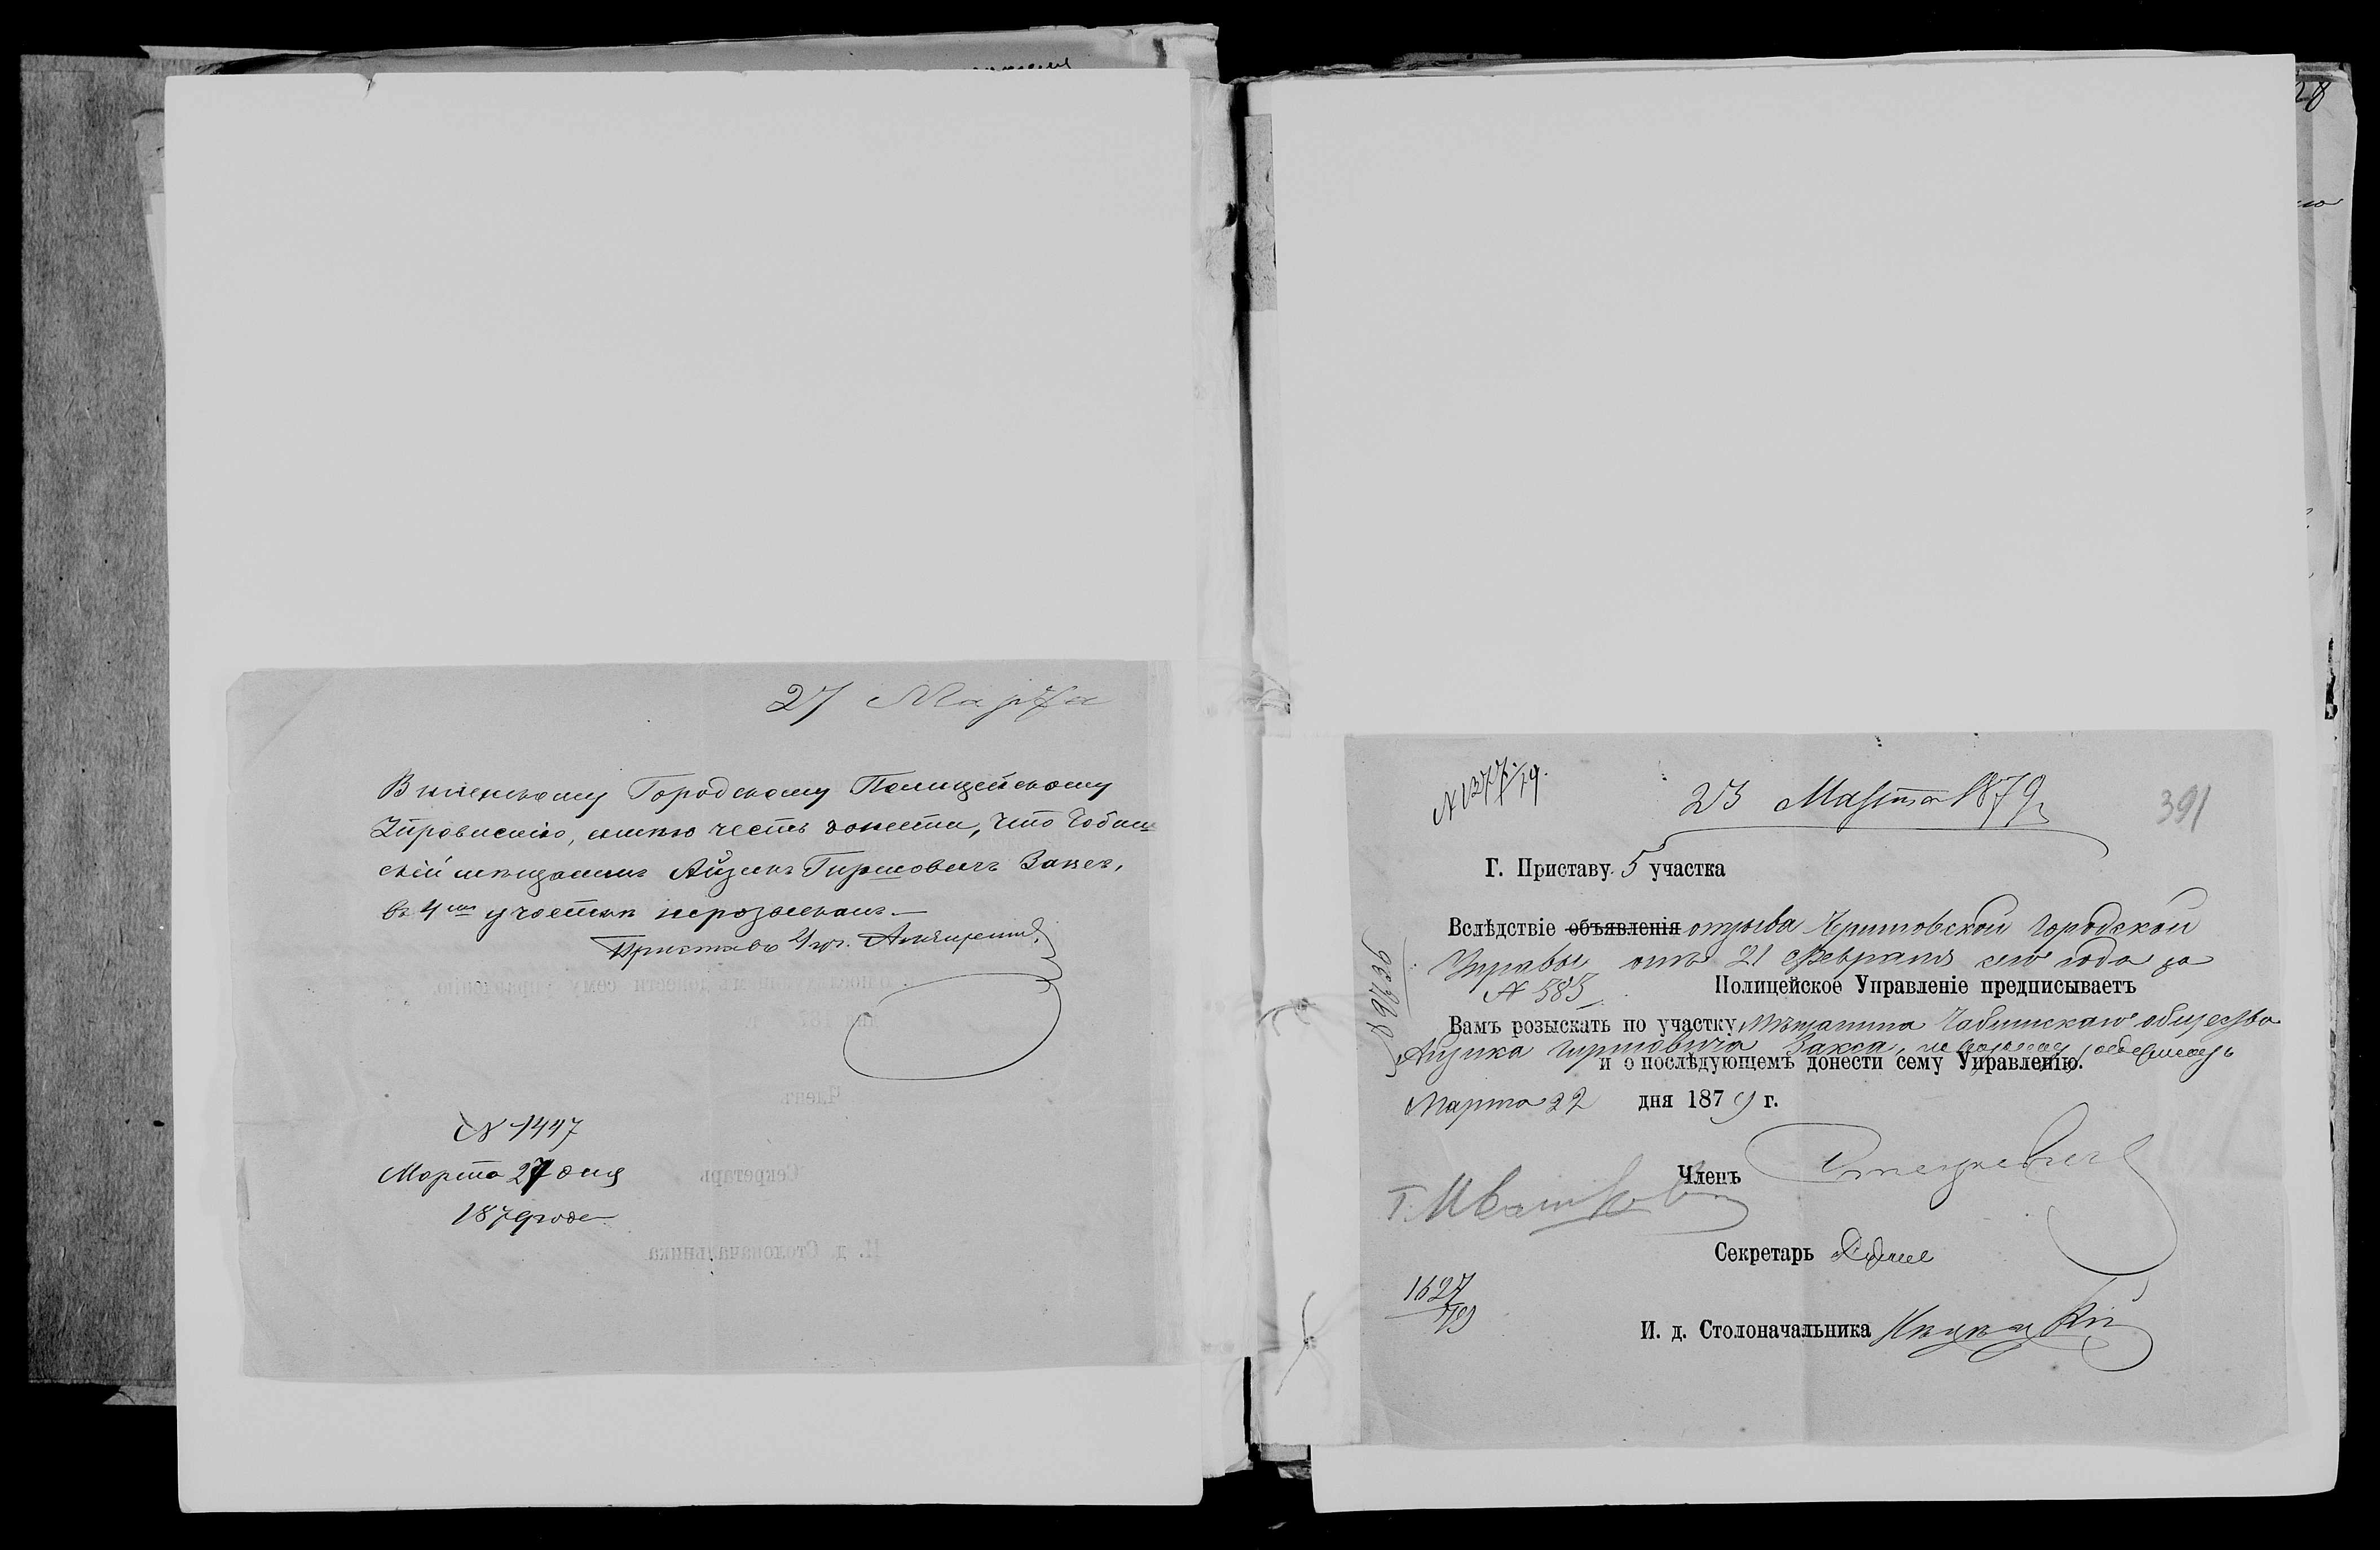 27 Марта
Виленскому Городскому Полицейскому
Управленію, имѣю честь донести, что Чобиш-
скій мѣщанинъ Айзикъ Гиршовичъ Заксъ,
въ 4мъ участкѣ нерозысканъ.—
Приставъ 4 уч.
N 1447
Марта 27 дня
1879 года
28
N 1377/79.
23 Марта 1879
391
Г. Приставу 5 участка
Вслѣдствіе объявленія отзыва Городской
Управы отъ 21 Февраля сего года за
N 585 Полицейское Управленіе предписываетъ
Вамъ розыскать по участку Мѣщанина Чабишскаго общества
Айзика Гиршовича Закса,
и о послѣдующемъ донести сему Управленію.
Марта 22 дня 1879 г.
Членъ
Секретарь
1627/79
И. д. Столоначальника